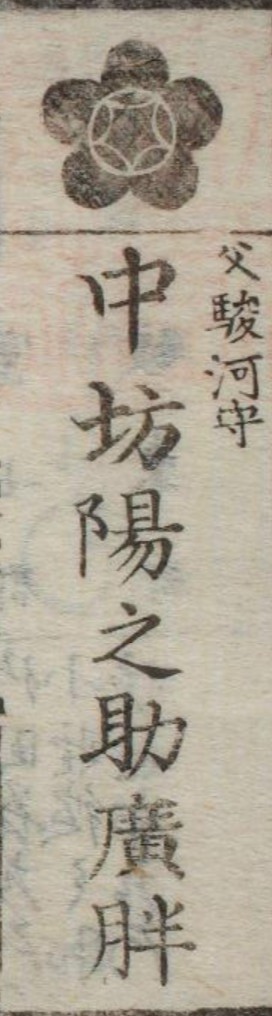 父駿河守
中坊陽之助廣胖